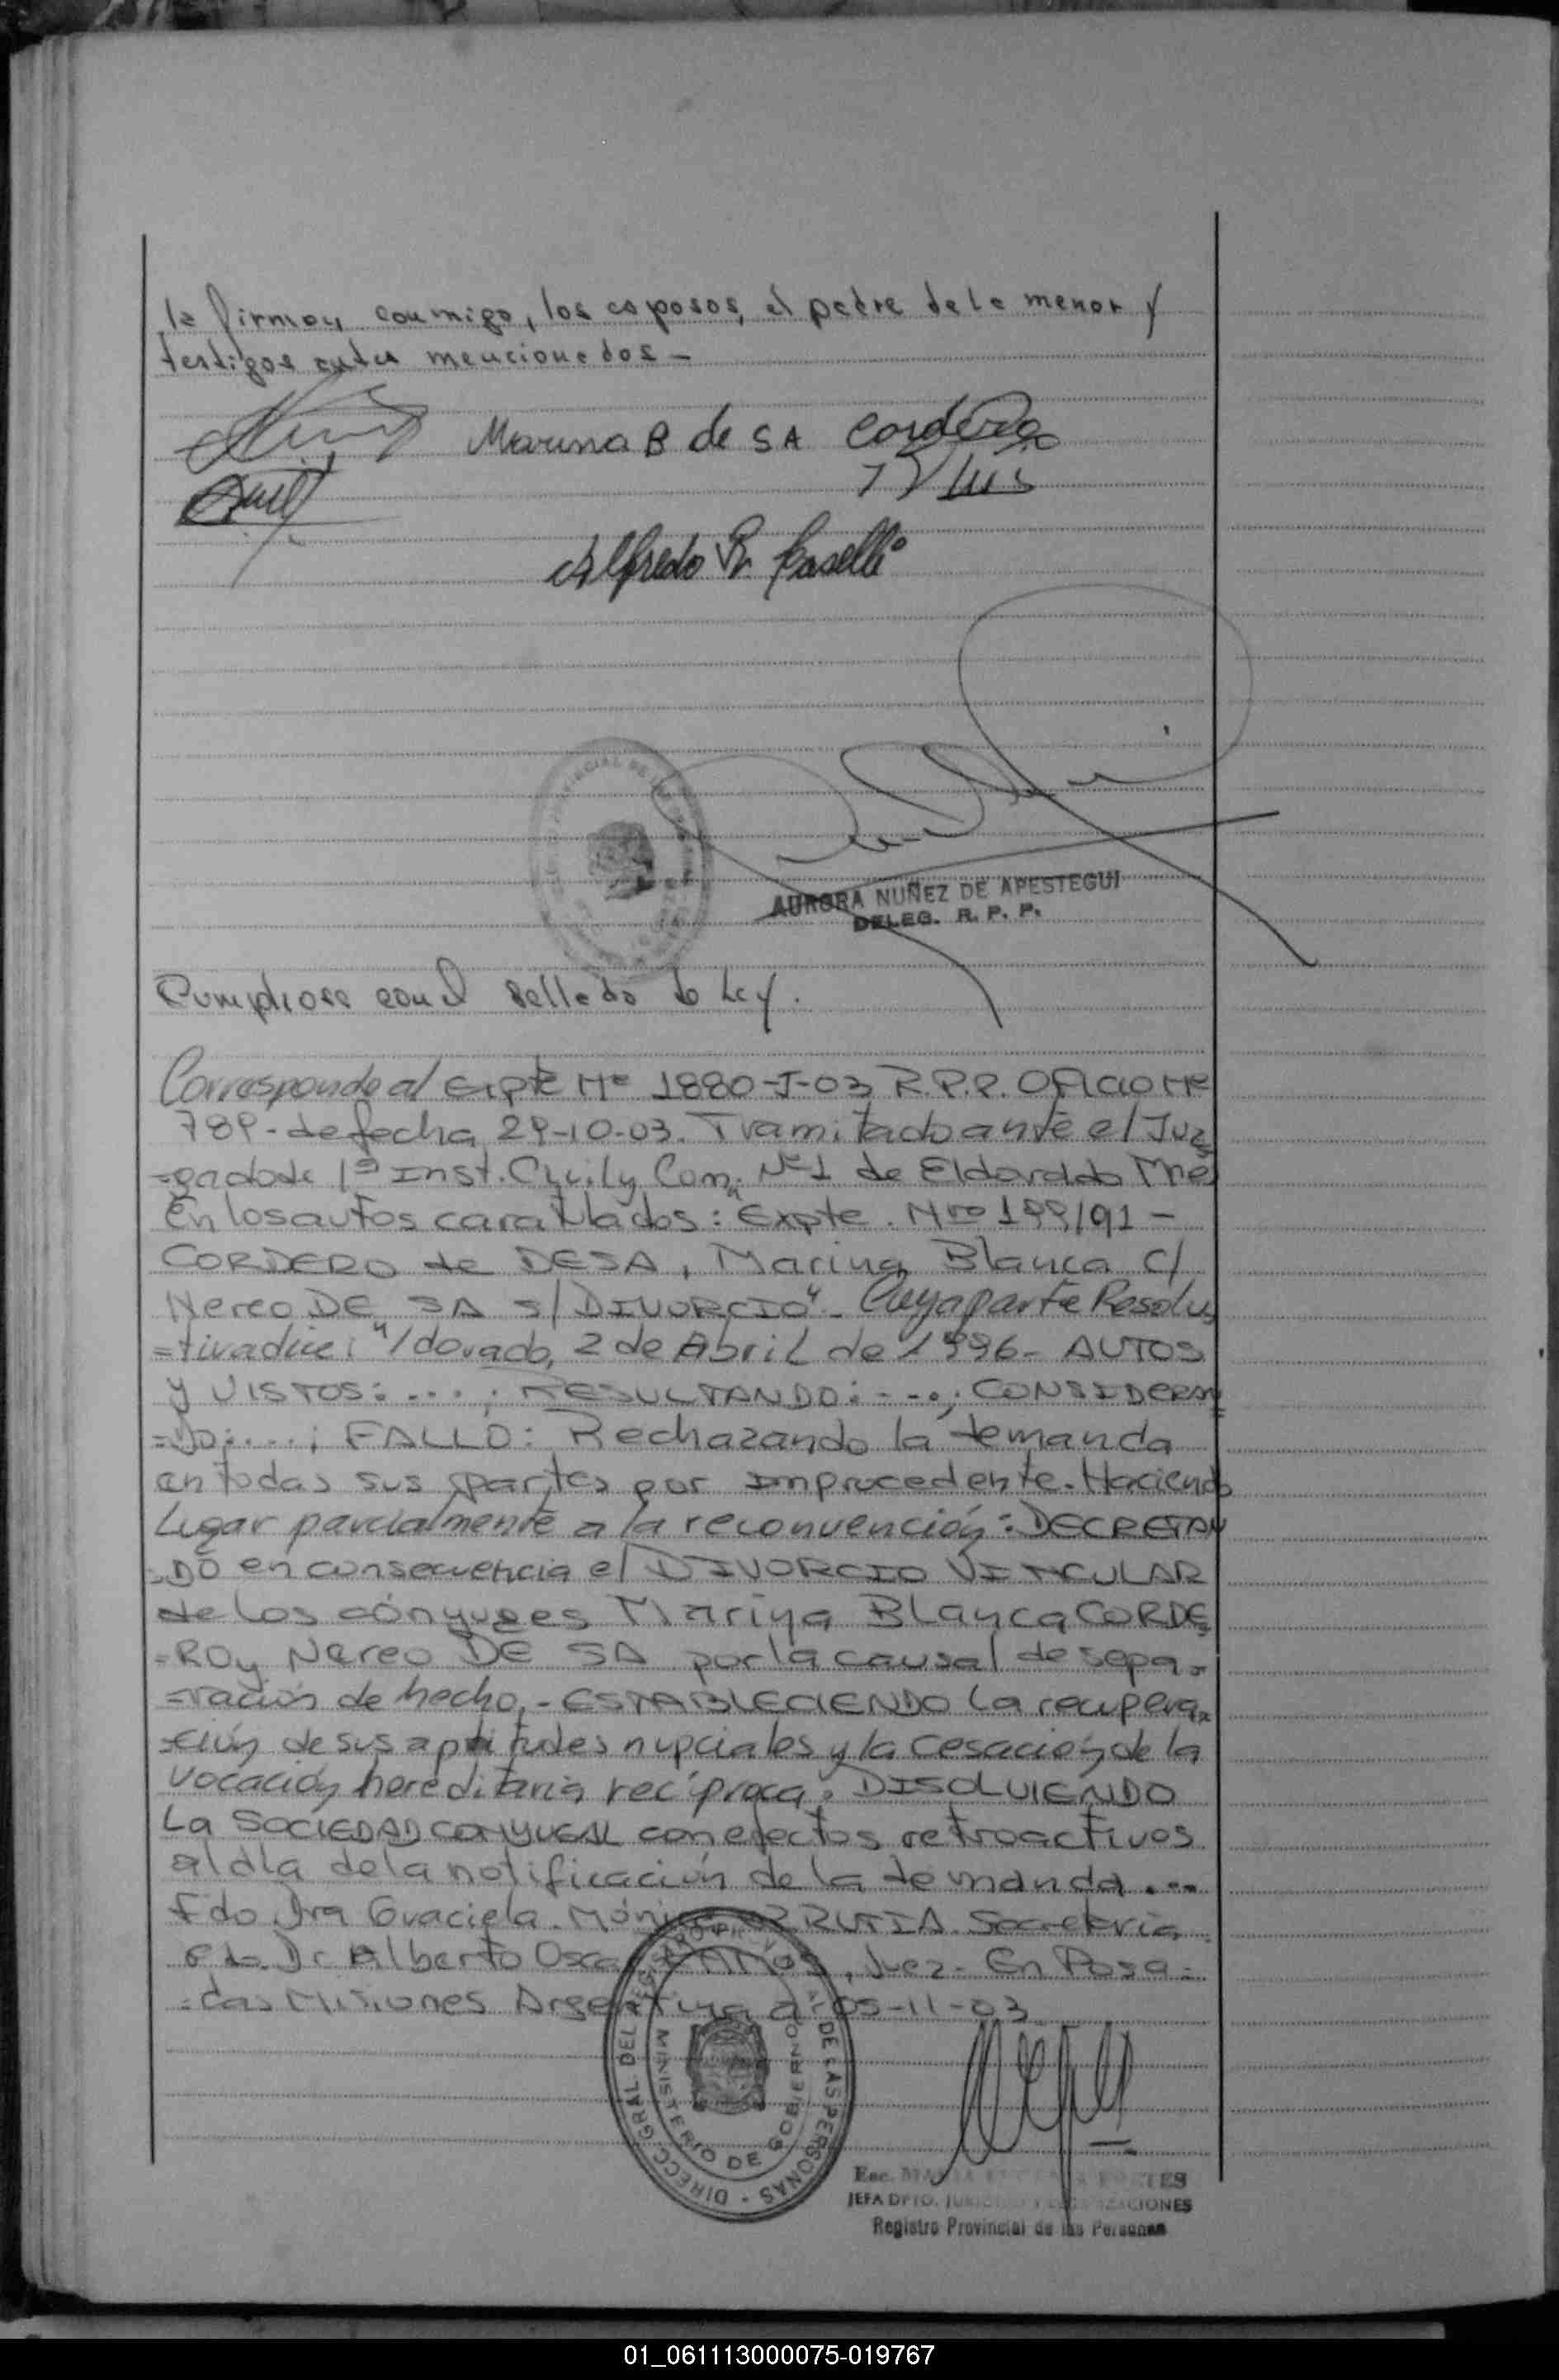 la firman conmigo, los esposos, el padre de la menor y
testigos antes mencionados -
Marina B de SA Cordero
Luis
Alfredo R. Caselli
AURORA NUÑEZ DE APESTEGUI
DELEG. R. P. P.
Cumpliose con el sellado de Ley.
Corresponde al Expte Nº 1880-J-03 R.P.P. OFicio Nº
789- de fecha 29-10-03. Tramitado ante el Juz
=gado de 1ª Inst. Civil y Com. Nº 1 de Eldorado Mnes
En los autos caratulados: Expte. Nro 199/91 -
CORDERO de DESA, Marina Blanca c/
Nereo DE SA s/DIVORCIO". Cuya parte Resolu
=tiva dice: "/dorado, 2 de Abril de 1996- AUTOS
y VISTOS: ....; RESULTANDO: ....; CONSIDERAN
=DO: ....; FALLO: Rechazando la demanda
en todas sus partes por improcedente. Haciendo
Lugar parcialmente a la reconvención: DECRETAN
=DO en consecuencia el DIVORCIO VINCULAR
de los cónyuges Marina Blanca CORDE
=RO y Nereo DE SA por la causal de sepa=
=ración de hecho.- ESTABLECIENDO la recupera=
=ción de sus aptitudes nupciales y la cesación de la
vocación hereditaria recíproca. DISOLVIENDO
La SOCIEDAD CONYUGAL con efectos retroactivos
al día de la notificación de la demanda...
Fdo Dra Graciela Mónica Secretaria
Fdo. Dr Alberto Oscar RAMOS, Juez- En Posa=
=das Misiones Argentina a: 05-11-03
DIRECC. GRAL DEL REG. PROVINCIAL DE LAS PERSONAS
MINISTERIO DE GOBIERNO
Esc. MARIA
JEFA DPTO.
Registro Provincial de las Personas
01_061113000075-019767